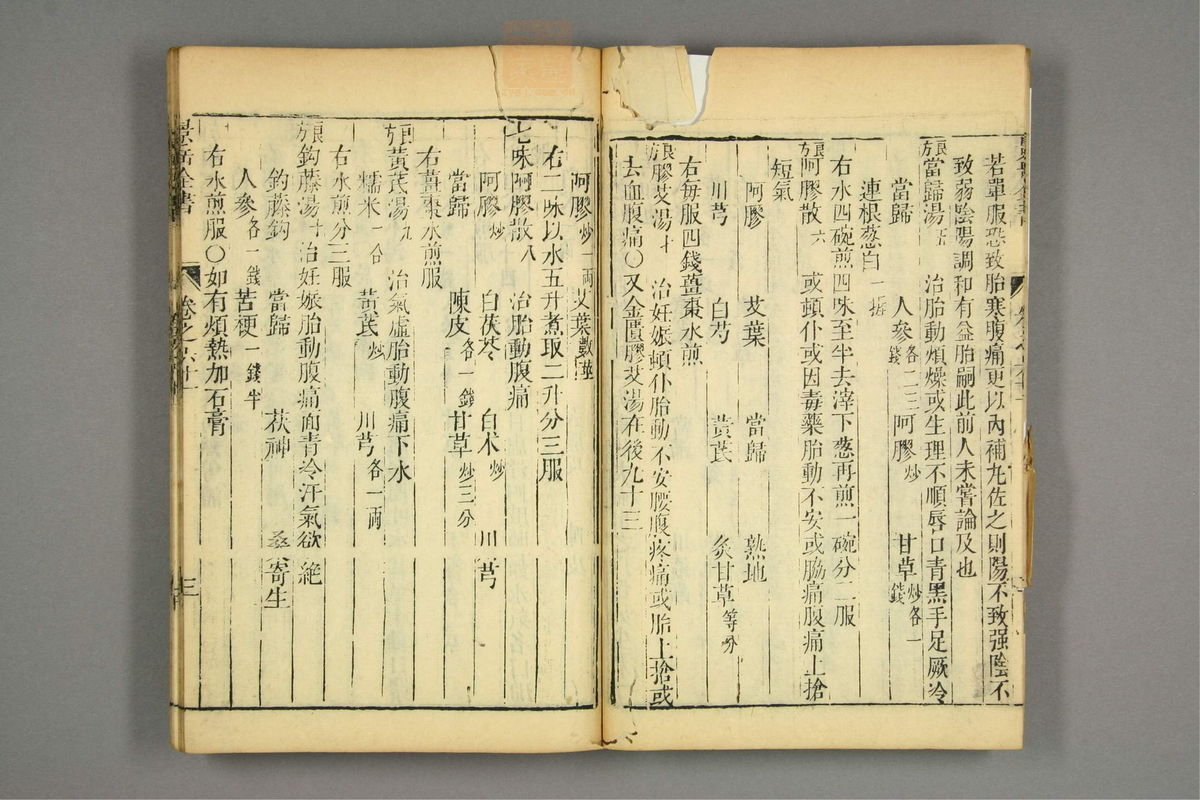 若單服恐致胎寒腹痛更以內補丸佐之則陽不致强陰不
致弱陰陽調和有益胎嗣此前人未嘗論及也
良方當歸湯五 治胎動煩燥或生理不順唇口青黑手足厥冷
當歸 人參各二三錢 阿膠炒 甘草炒各一錢
連根葱白一握
右水四碗煎四味至半去滓下葱再煎一碗分二服
良方阿膠散六 或頓仆或因毒藥胎動不安或脇痛腹痛上搶
短氣
阿膠 艾葉 當歸 熟地
川芎 白芍 黃芪 炙甘草等分
右每服四錢薑棗水煎
良方膠艾湯七 治妊娠頓仆胎動不安腰腹疼痛或胎上搶或
去血腹痛〇又金匱膠艾湯在後九十三
阿膠炒一兩 艾葉數莖
右二味以水五升煮取二升分三服
七味阿膠散八 治胎動腹痛
阿膠炒 白茯苓 白术炒 川芎
當歸 陳皮各一錢 甘草炒三分
右薑棗水煎服
良方黃芪湯九 治氣虛胎動腹痛下水
糯米一合 黃芪炒 川芎各一兩
右水煎分三服
良方鈎藤湯十 治妊娠胎動腹痛面青冷汗氣欲絶
鈎藤鈎 當歸 茯神 桑寄生
人參各一錢 苦梗一錢半
右水煎服〇如有煩熱加石膏
景岳全書 卷之六十一 三